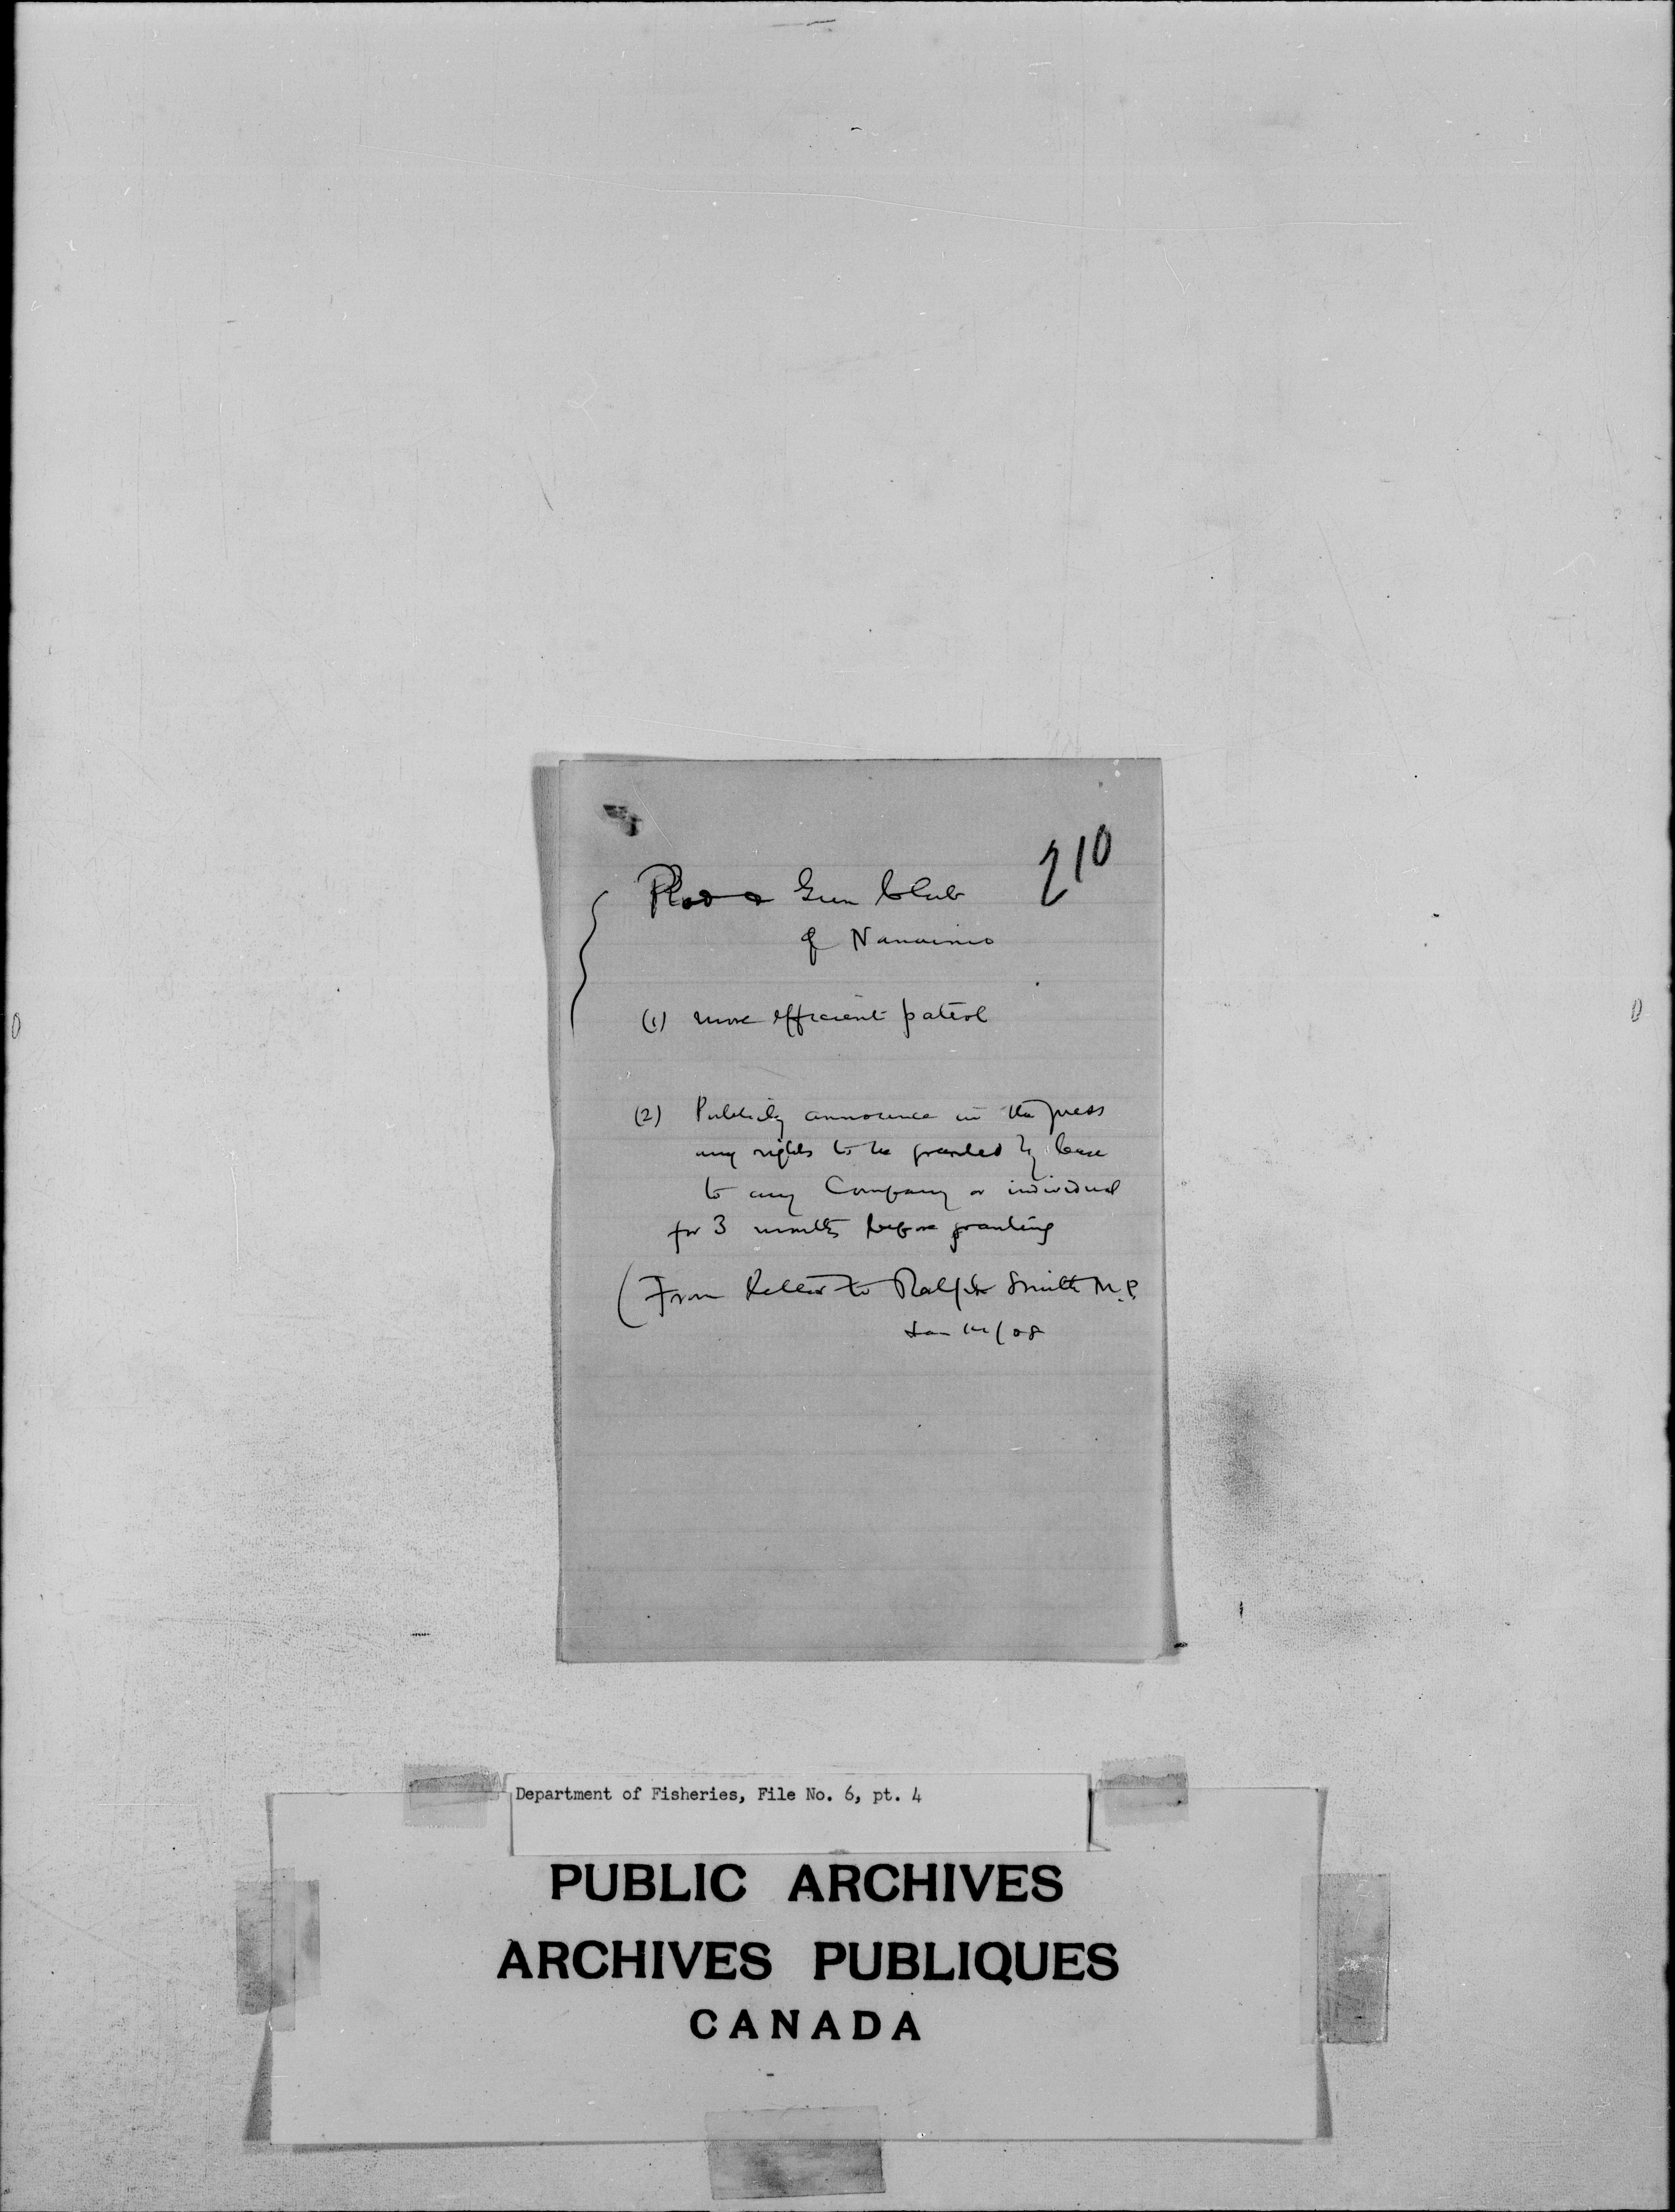 210
Rod & Gun Club
of Nanaimo
(1) more efficient patrol
(2) Publicly announce in the press
any rights to be granted by lease
to any Company or individual
for 3 months before granting
(From letter to Ralph Smith M.P.
Jan /08
Department of Fisheries, File No. 6, pt. 4
PUBLIC ARCHIVES
ARCHIVES PUBLIQUES
CANADA